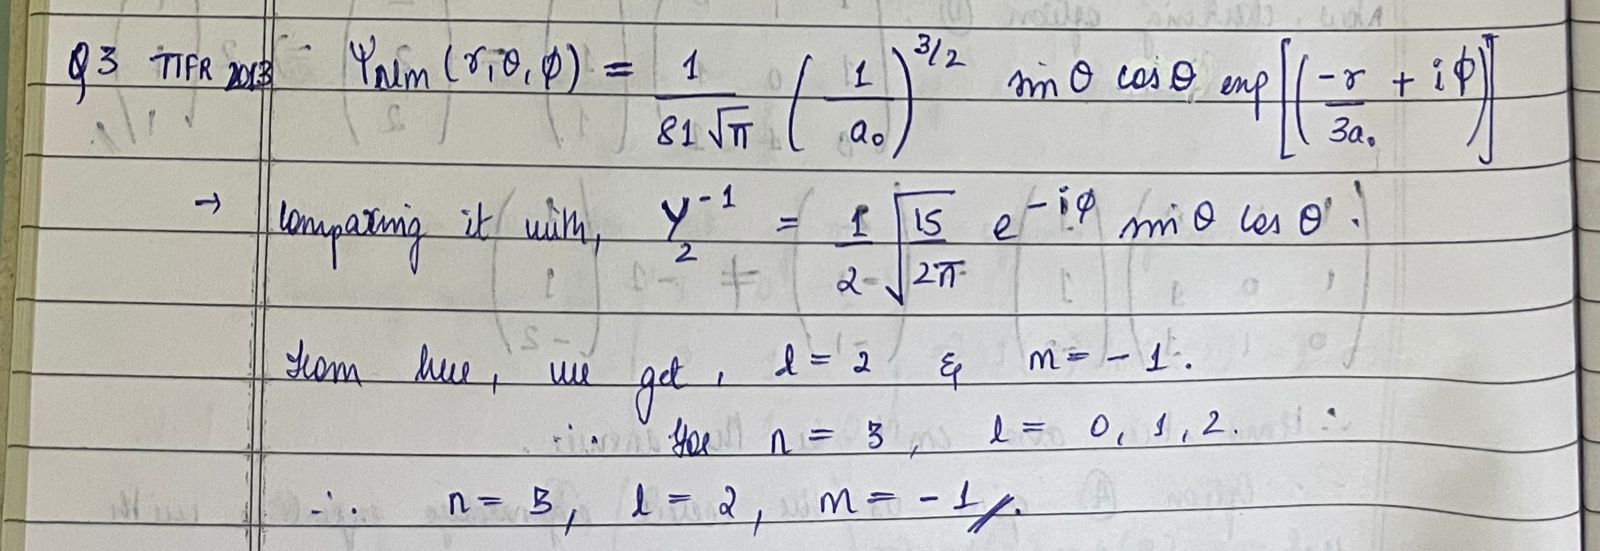 Q3 TIFR 2013 :- Ψnlm (r, θ, φ) = 1/(81√π) (1/a₀)^3/2 sin θ cos θ exp[(-r/3a₀ + iφ)]
→ Comparing it with, Y₂^-1 = 1/2 √(15/2π) e^-iφ sin θ cos θ.
From here, we get, l = 2 & m = -1.
∴ For n = 3, l = 0, 1, 2.
∴ n = 3, l = 2, m = -1 //.